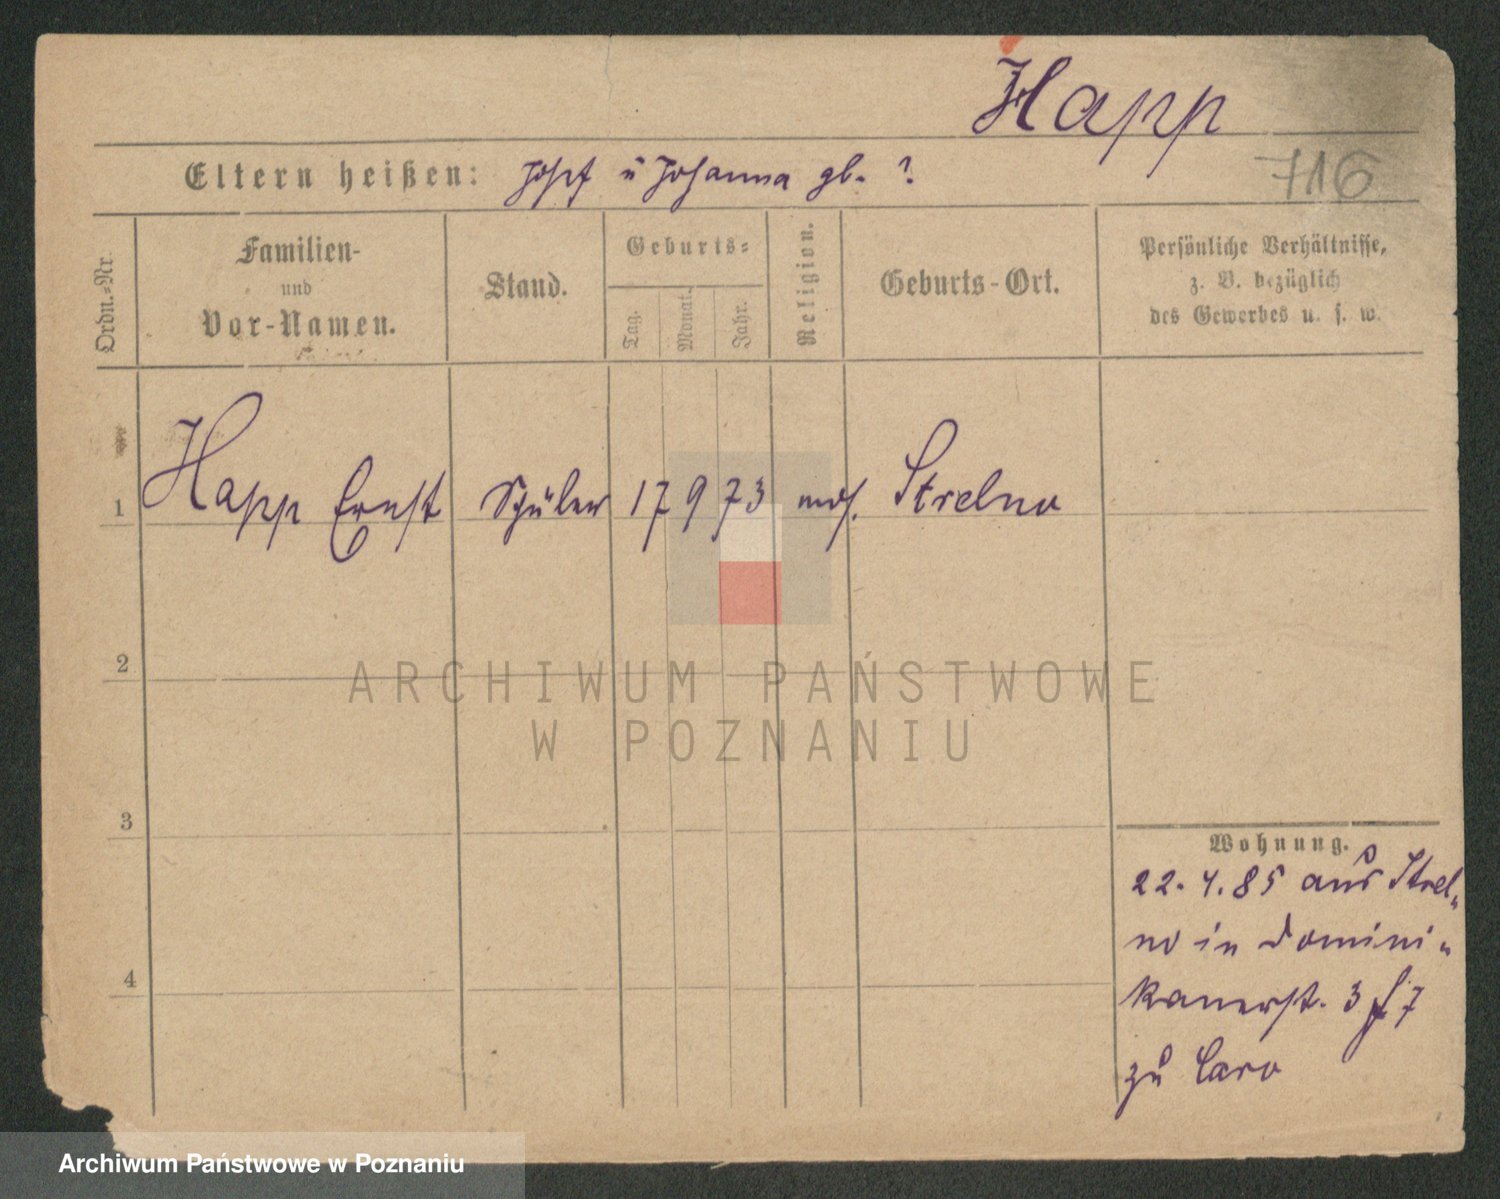 Happ
Eltern heißen: Josef u Johanna gb. ?
716
Ordn.-Nr.
Familien-
und
Vor-Namen.
Stand.
Geburts-
Tag.
Monat.
Jahr.
Religion.
Geburts-Ort.
Persönliche Verhältnisse,
z. B. bezüglich
des Gewerbes u. s. w.
1 Happ Ernst Schüler 17 9 73 mos. Strelno
2
ARCHIWUM PAŃSTWOWE
W POZNANIU
3
Wohnung.
22. 4. 85 aus Strel-
no in Domini-
4
kanerst. 3 7
zu Caro
Archiwum Państwowe w Poznaniu